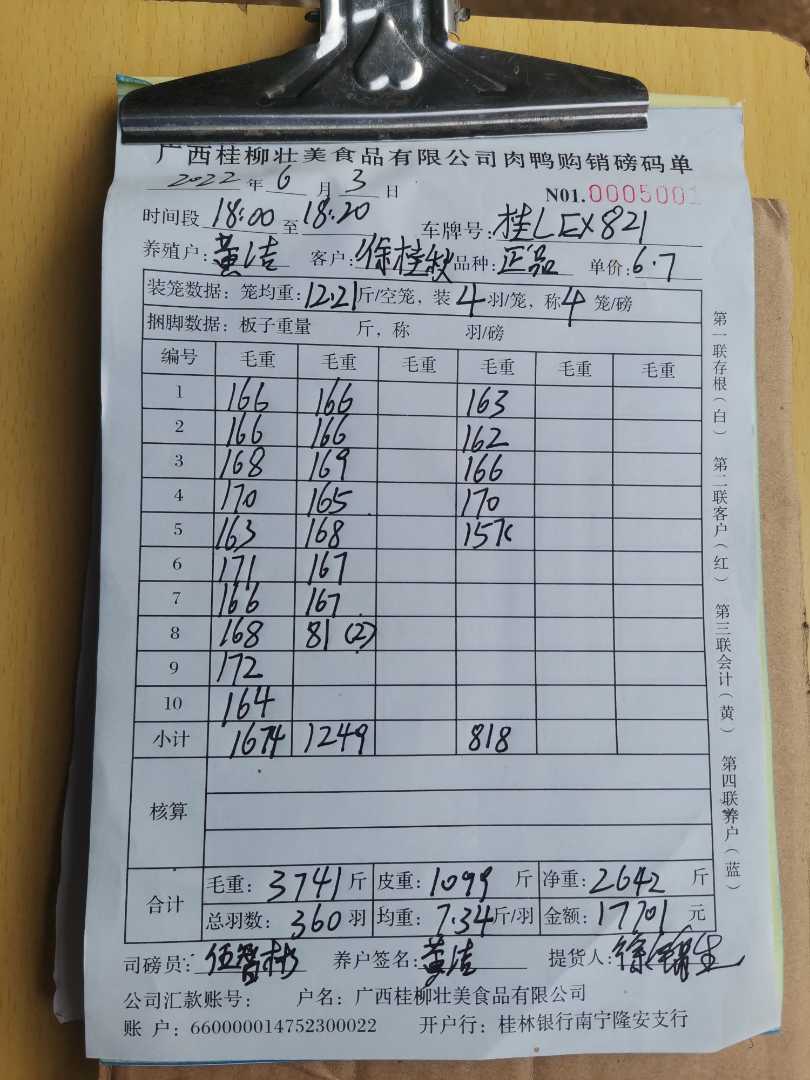 广西桂柳壮美食品有限公司肉鸭购销磅码单
2022 年 6 月 3 日 N01.0005001
时间段 18:00 至 18:20 车牌号: 桂LEX821
养殖户: 黄洁 客户: 徐桂秋 品种: 正品 单价: 6.7
装笼数据: 笼均重: 12.21 斤/空笼, 装 4 羽/笼, 称 4 笼/磅
捆脚数据: 板子重量 斤, 称 羽/磅
编号 毛重 毛重 毛重 毛重 毛重 毛重
1 166 166 163
2 166 166 162
3 168 169 166
4 170 165 170
5 163 168 157
6 171 167
7 166 167
8 168 81 (2)
9 172
10 164
小计 1674 1249 818
核算
合计 毛重: 3741 斤 皮重: 1099 斤 净重: 2642 斤
总羽数: 360 羽 均重: 7.34 斤/羽 金额: 17701 元
司磅员: 养户签名: 黄洁 提货人:
公司汇款账号: 户名: 广西桂柳壮美食品有限公司
账 户: 660000014752300022 开户行: 桂林银行南宁隆安支行
第一联存根(白) 第二联客户(红) 第三联会计(黄) 第四联养户(蓝)